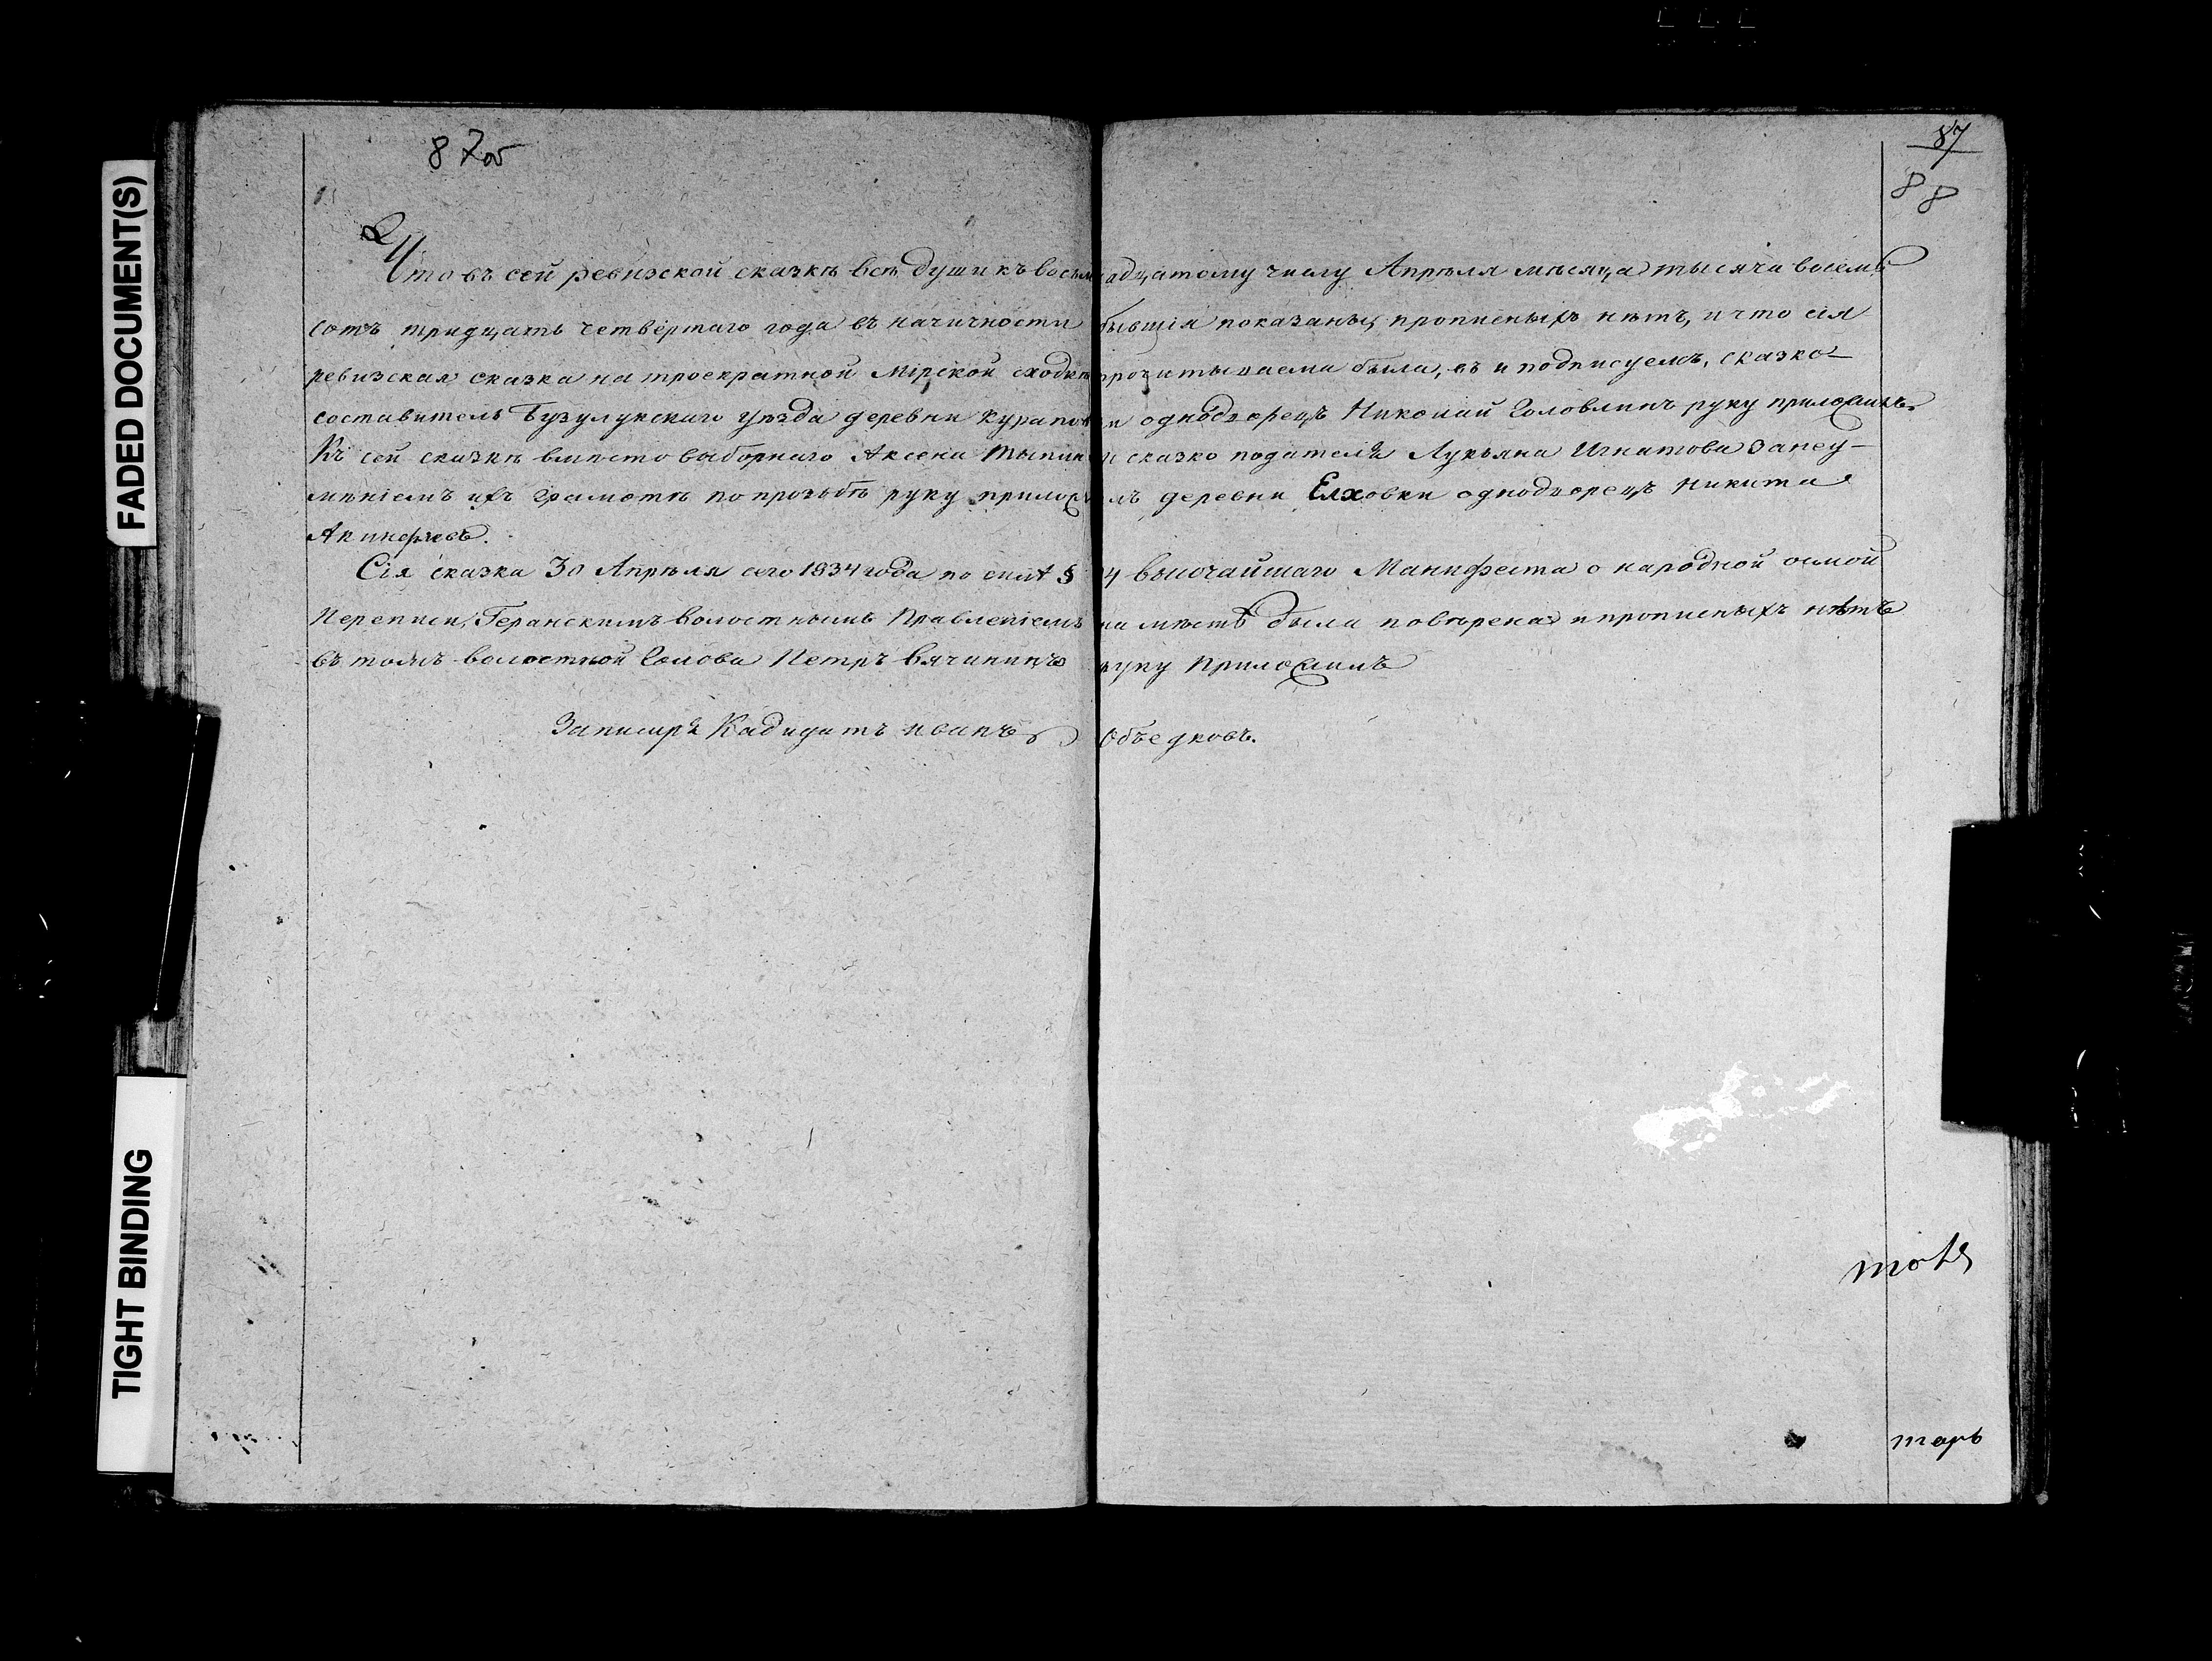 87об
87
88
Что въ сей ревизской сказкѣ всѣ души къ восемнадцатому числу Апрѣля мѣсяца тысяча восемь
сотъ тридцать четвертаго года въ наличности бывшія показаны, прописныхъ нѣтъ, и что сія
ревизская сказка на троекратной Мірской сходкѣ прочитываема была, въ и подписуемъ, сказко-
составитель Бузулукскаго уѣзда деревни Курапов и однодворецъ Николай Головлинъ руку приложилъ.
Къ сей сказкѣ вмѣсто выборнаго Аксена и сказко подателя Лукьяна Игнатова за неу-
мѣніемъ ихъ грамотѣ по прозьбѣ руку приложилъ деревни Елховки однодворецъ Никита
Акинфіевъ.
Сія сказка 30 Апрѣля сего 1834 года по силѣ § 14 высочайшаго Манифеста о народной осмой
Переписи, Геранскимъ Волостнымъ Правленіемъ на мѣстѣ была повѣрена и прописныхъ нѣтъ
въ томъ волостной Голова Петръ Вячинингъ руку Приложилъ
Записиръ Кадидатъ Иванъ Объедковъ.
тарь